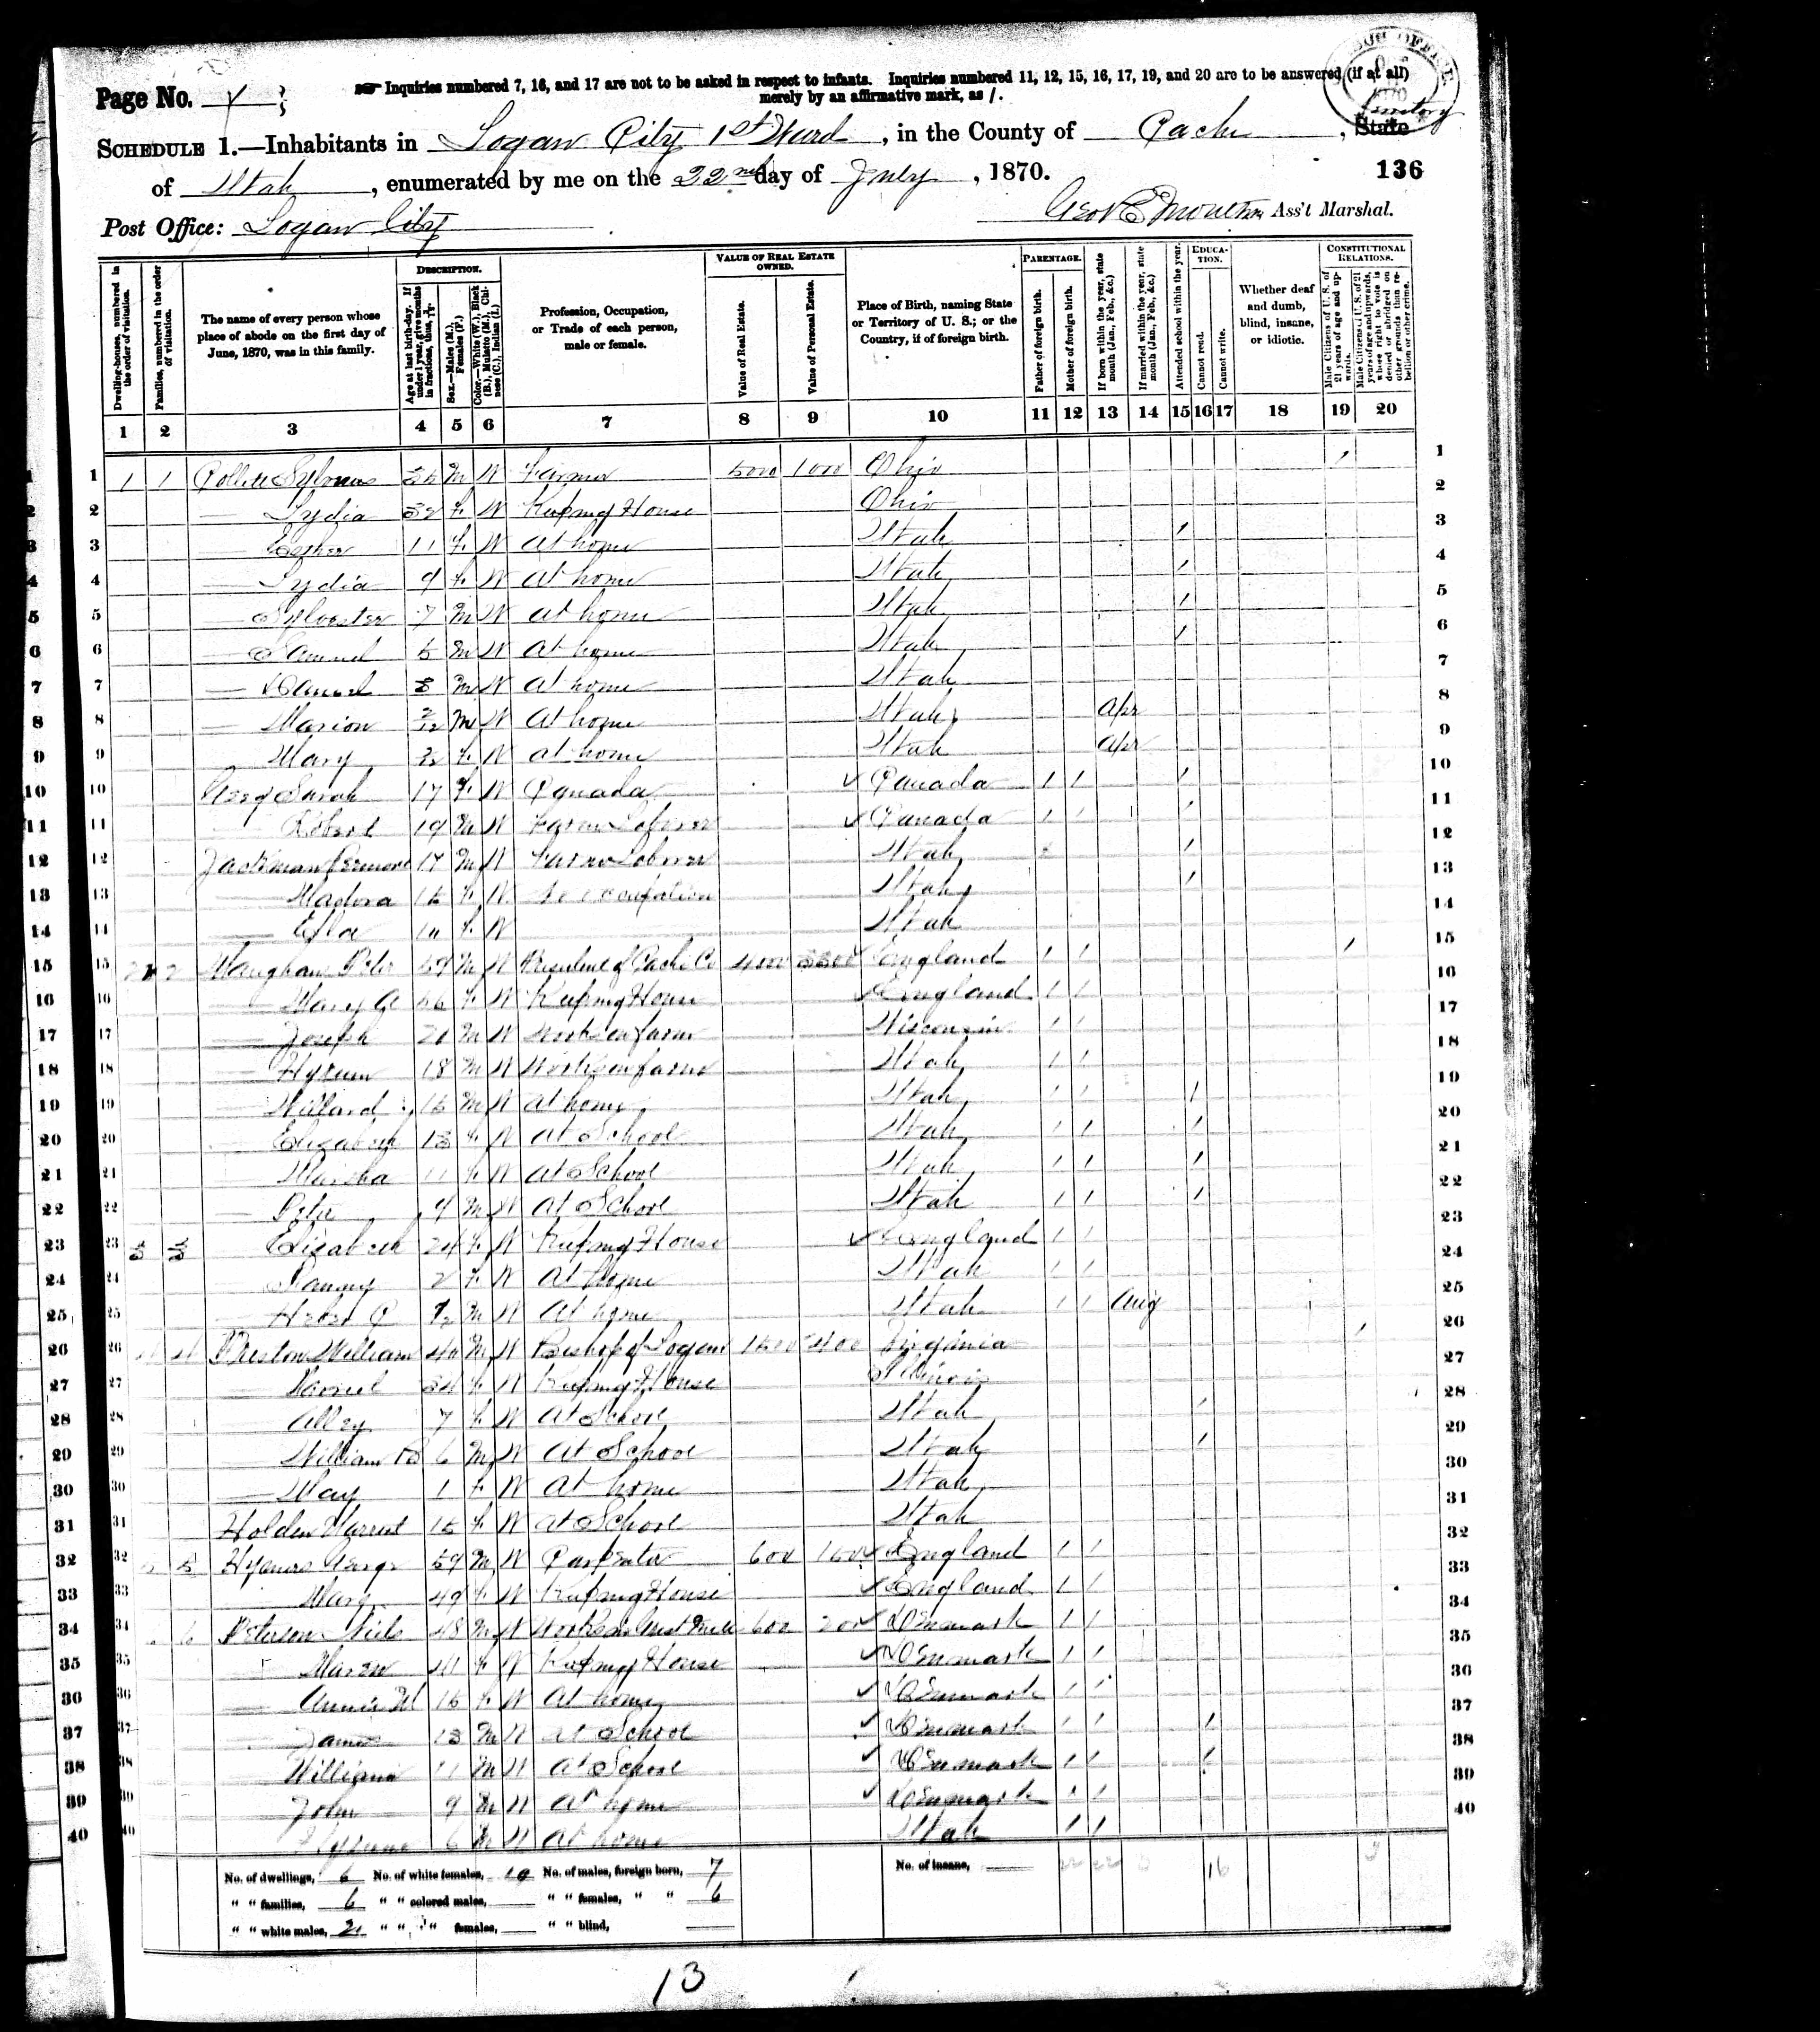 Page No.
Inquiries numbered 7, 16, and 17 are not to be asked in respect to infants. Inquiries numbered 11, 12, 15, 16, 17, 19, and 20 are to be answered (if at all)
merely by an affirmative mark, as /.
SCHEDULE 1.—Inhabitants in Logan City 1st Ward, in the County of Cache, State
Territory
136
of Utah, enumerated by me on the 22nd day of July, 1870.
Post Office: Logan City
Geo Moulton Ass't Marshal.
Dwelling-houses, numbered in the order of visitation.
Families, numbered in the order of visitation.
The name of every person whose place of abode on the first day of June, 1870, was in this family.
DESCRIPTION.
Age at last birth-day. If under 1 year, give months in fractions, thus,
Sex.—Males (M.), Females (F.)
Color.—White (W.), Black (B.), Mulatto (M.), Chinese (C.), Indian (I.)
Profession, Occupation, or Trade of each person, male or female.
VALUE OF REAL ESTATE OWNED.
Value of Real Estate.
Value of Personal Estate.
Place of Birth, naming State or Territory of U. S.; or the Country, if of foreign birth.
PARENTAGE.
Father of foreign birth.
Mother of foreign birth.
If born within the year, state month (Jan., Feb., &c.)
If married within the year, state month (Jan., Feb., &c.)
Attended school within the year.
EDUCATION.
Cannot read.
Cannot write.
Whether deaf and dumb, blind, insane, or idiotic.
CONSTITUTIONAL RELATIONS.
Male Citizens of U. S. of 21 years of age and upwards.
Male Citizens of U. S. of 21 years of age and upwards, whose right to vote is denied or abridged on other grounds than rebellion or other crime.
1 2 3 4 5 6 7 8 9 10 11 12 13 14 15 16 17 18 19 20
1 1 1 Collett Sylvanus M W Farmer 1000 Ohio /
2 Lydia 32 F W Keeping House Ohio
3 Esther 11 F W At home Utah /
4 Lydia 9 F W At home Utah /
5 Sylvester 7 M W At home Utah /
6 Samuel 5 M W At home Utah /
7 Daniel 3 M W At home Utah
8 Marion M W At home Utah Apr
9 Mary F W At home Utah Apr
10 Sarah 17 F W Canada Canada / / /
11 Robert 19 M W Farm Laborer Canada / / /
12 Jackman 17 M W Farm Laborer Utah /
13 Madora 15 F W No occupation Utah /
14 F W Utah
15 2 2 Maughan Peter 59 M W President of Cache Co 4000 England / / /
16 Mary A F W Keeping House England / /
17 Joseph 20 M W Works on farm Wisconsin / /
18 Hyrum 18 M W Works on farm Utah / /
19 Willard 15 M W At home Utah / / /
20 Elizabeth 13 F W At School Utah / / /
21 Martha 11 F W At School Utah / / /
22 Peter 9 M W At School Utah / / /
23 3 3 Elizabeth 24 F W Keeping House England / /
24 2 F W At home Utah / /
25 M W At home Utah / / Aug
26 4 4 Preston William 40 M W Bishop of Logan 1500 400 Virginia /
27 Harriet 34 F W Keeping House Illinois
28 Alley 7 F W At School Utah /
29 William B 6 M W At School Utah /
30 May 1 F W At home Utah
31 Holden Harriet 15 F W At School Utah
32 5 5 George 59 M W Carpenter 600 England / /
33 Mary 49 F W Keeping House England / /
34 6 Peterson Niels 48 M W Works in Grist Mill 600 200 Denmark / /
35 Maren F W Keeping House Denmark / /
36 Annie M 15 F W At home Denmark / /
37 James 13 M W At School Denmark / / /
38 William 11 M W At School Denmark / / /
39 John 9 M W At home Denmark / /
40 Hyrum 6 M W At home Utah / /
No. of dwellings, 6 No. of white females, No. of males, foreign born, 7 No. of insane, 16
" " families, 6 " " colored males, " " females, " " 6
" " white males, 21 " " " females, " " blind,
13